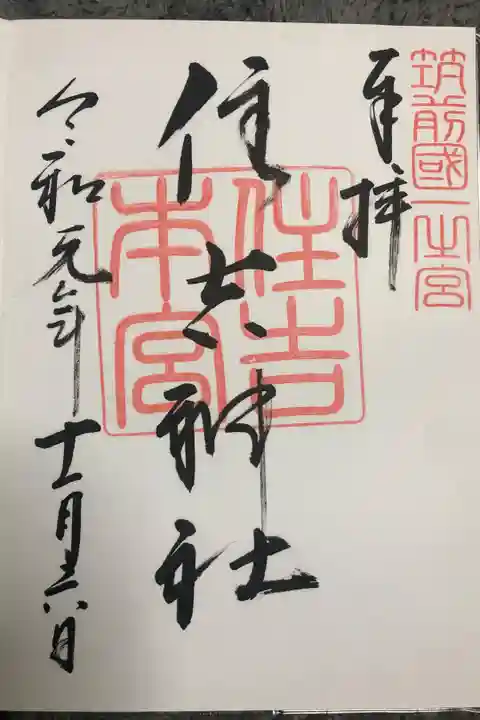 筑前國一之宮
奉拝
住吉神社
住吉
本宮
令和元年十一月日